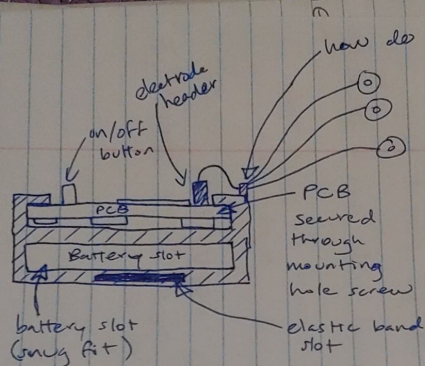 how do
electrode
header
on/off
button
PCB
Battery slot
PCB
secured
through
mounting
hole screw
battery slot
(snug fit)
elastic band
slot